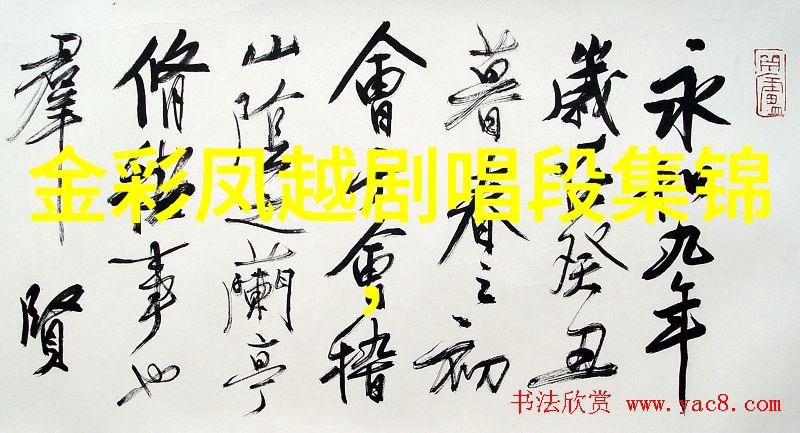 永和九年
歲在癸丑
暮春之初
會于會稽
山陰之蘭亭
脩禊事也
羣賢
金彩凤越剧唱段集锦
,
书法欣赏 www.yac8.com